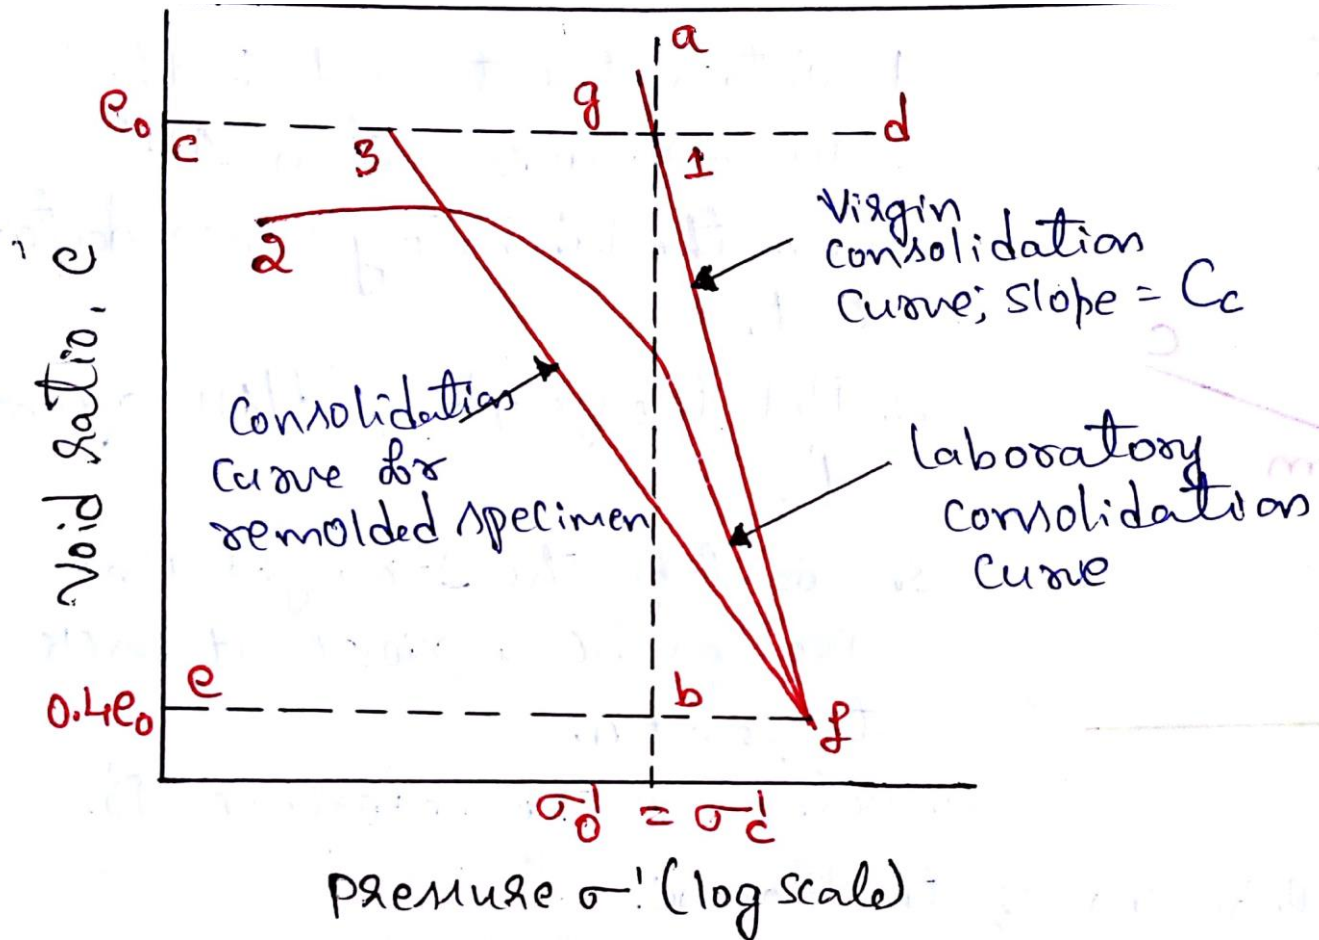 a
e₀
g
d
c
3
1
Virgin
consolidation
curve; slope = Cc
2
Void ratio, e
Consolidation
curve for
remolded specimen
laboratory
consolidation
curve
0.4e₀
e
b
f
σ₀' = σc'
pressure σ' (log scale)